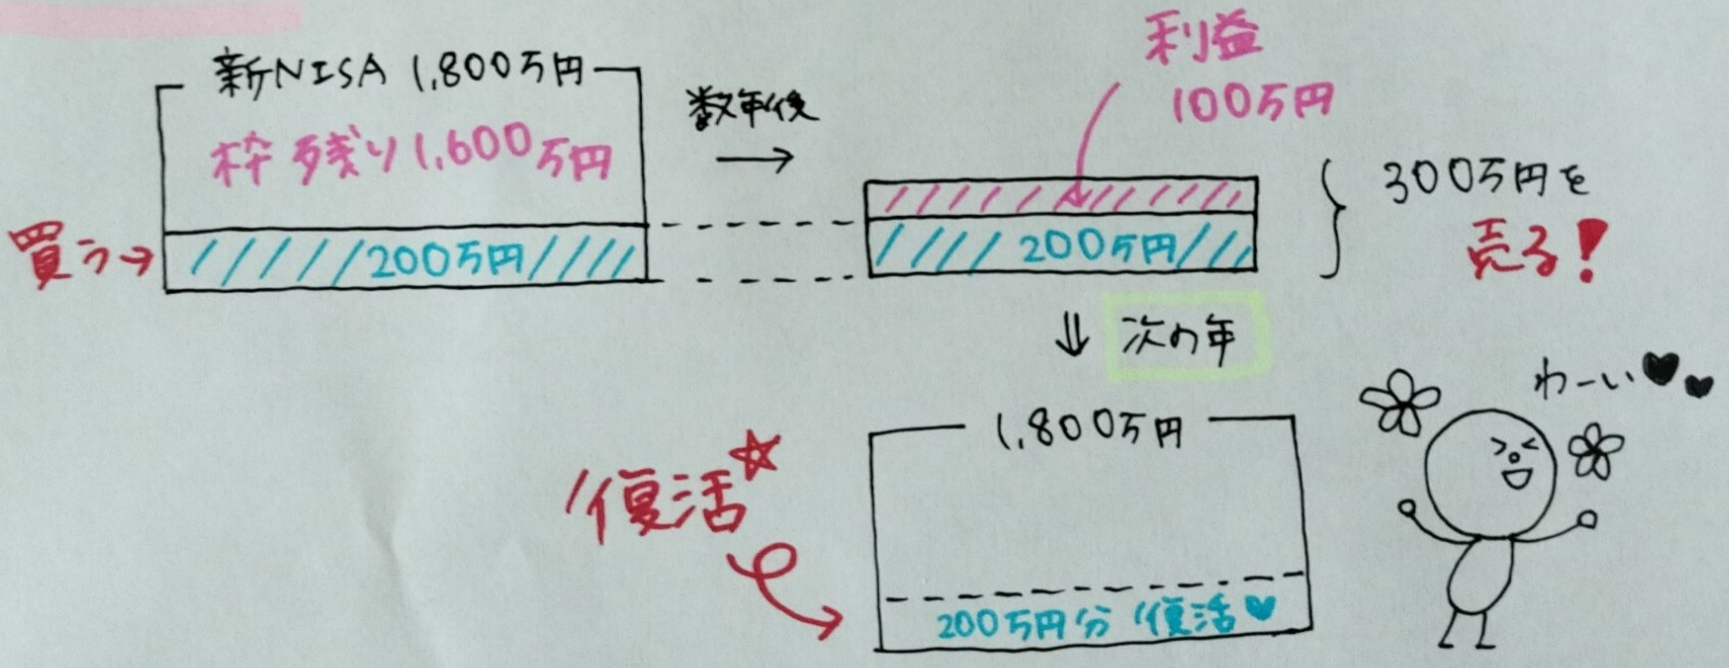 新NISA 1,800万円
枠 残り1,600万円
買う→
200万円
数年後
→
利益
100万円
200万円
300万円を
売る!
⇓ 次の年
1,800万円
復活☆
200万円分 復活♥
わーい♥♥